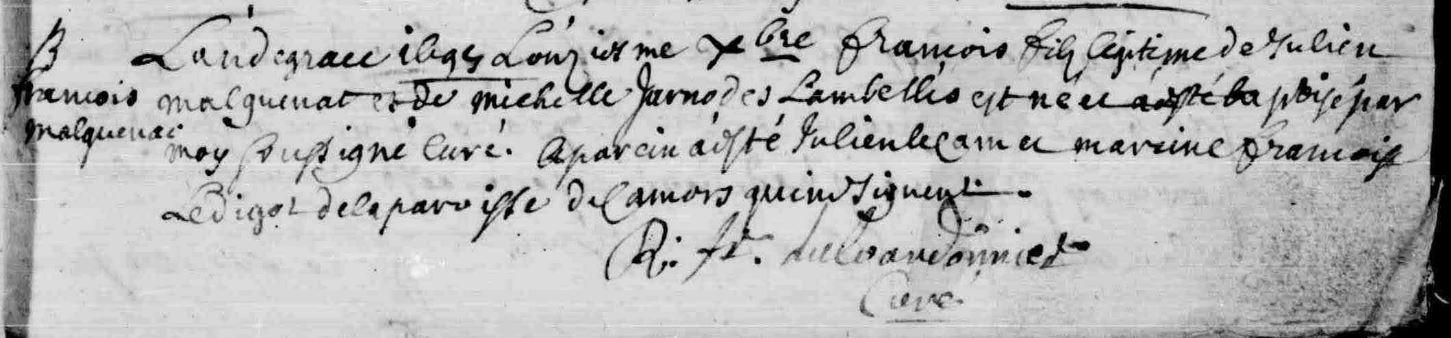 B
françois
malquenat
L'an de grace 1695 L'onziesme xbre françois fils légitime de Julien
malquenat et de michelle Jarno des Lambellés est né et a esté baptisé par
moy soussigné Curé. a parein a esté Julien le cam et mareine françoise
Le digol de la paroisse de Camors qui ne signent.
R. fr.
Curé